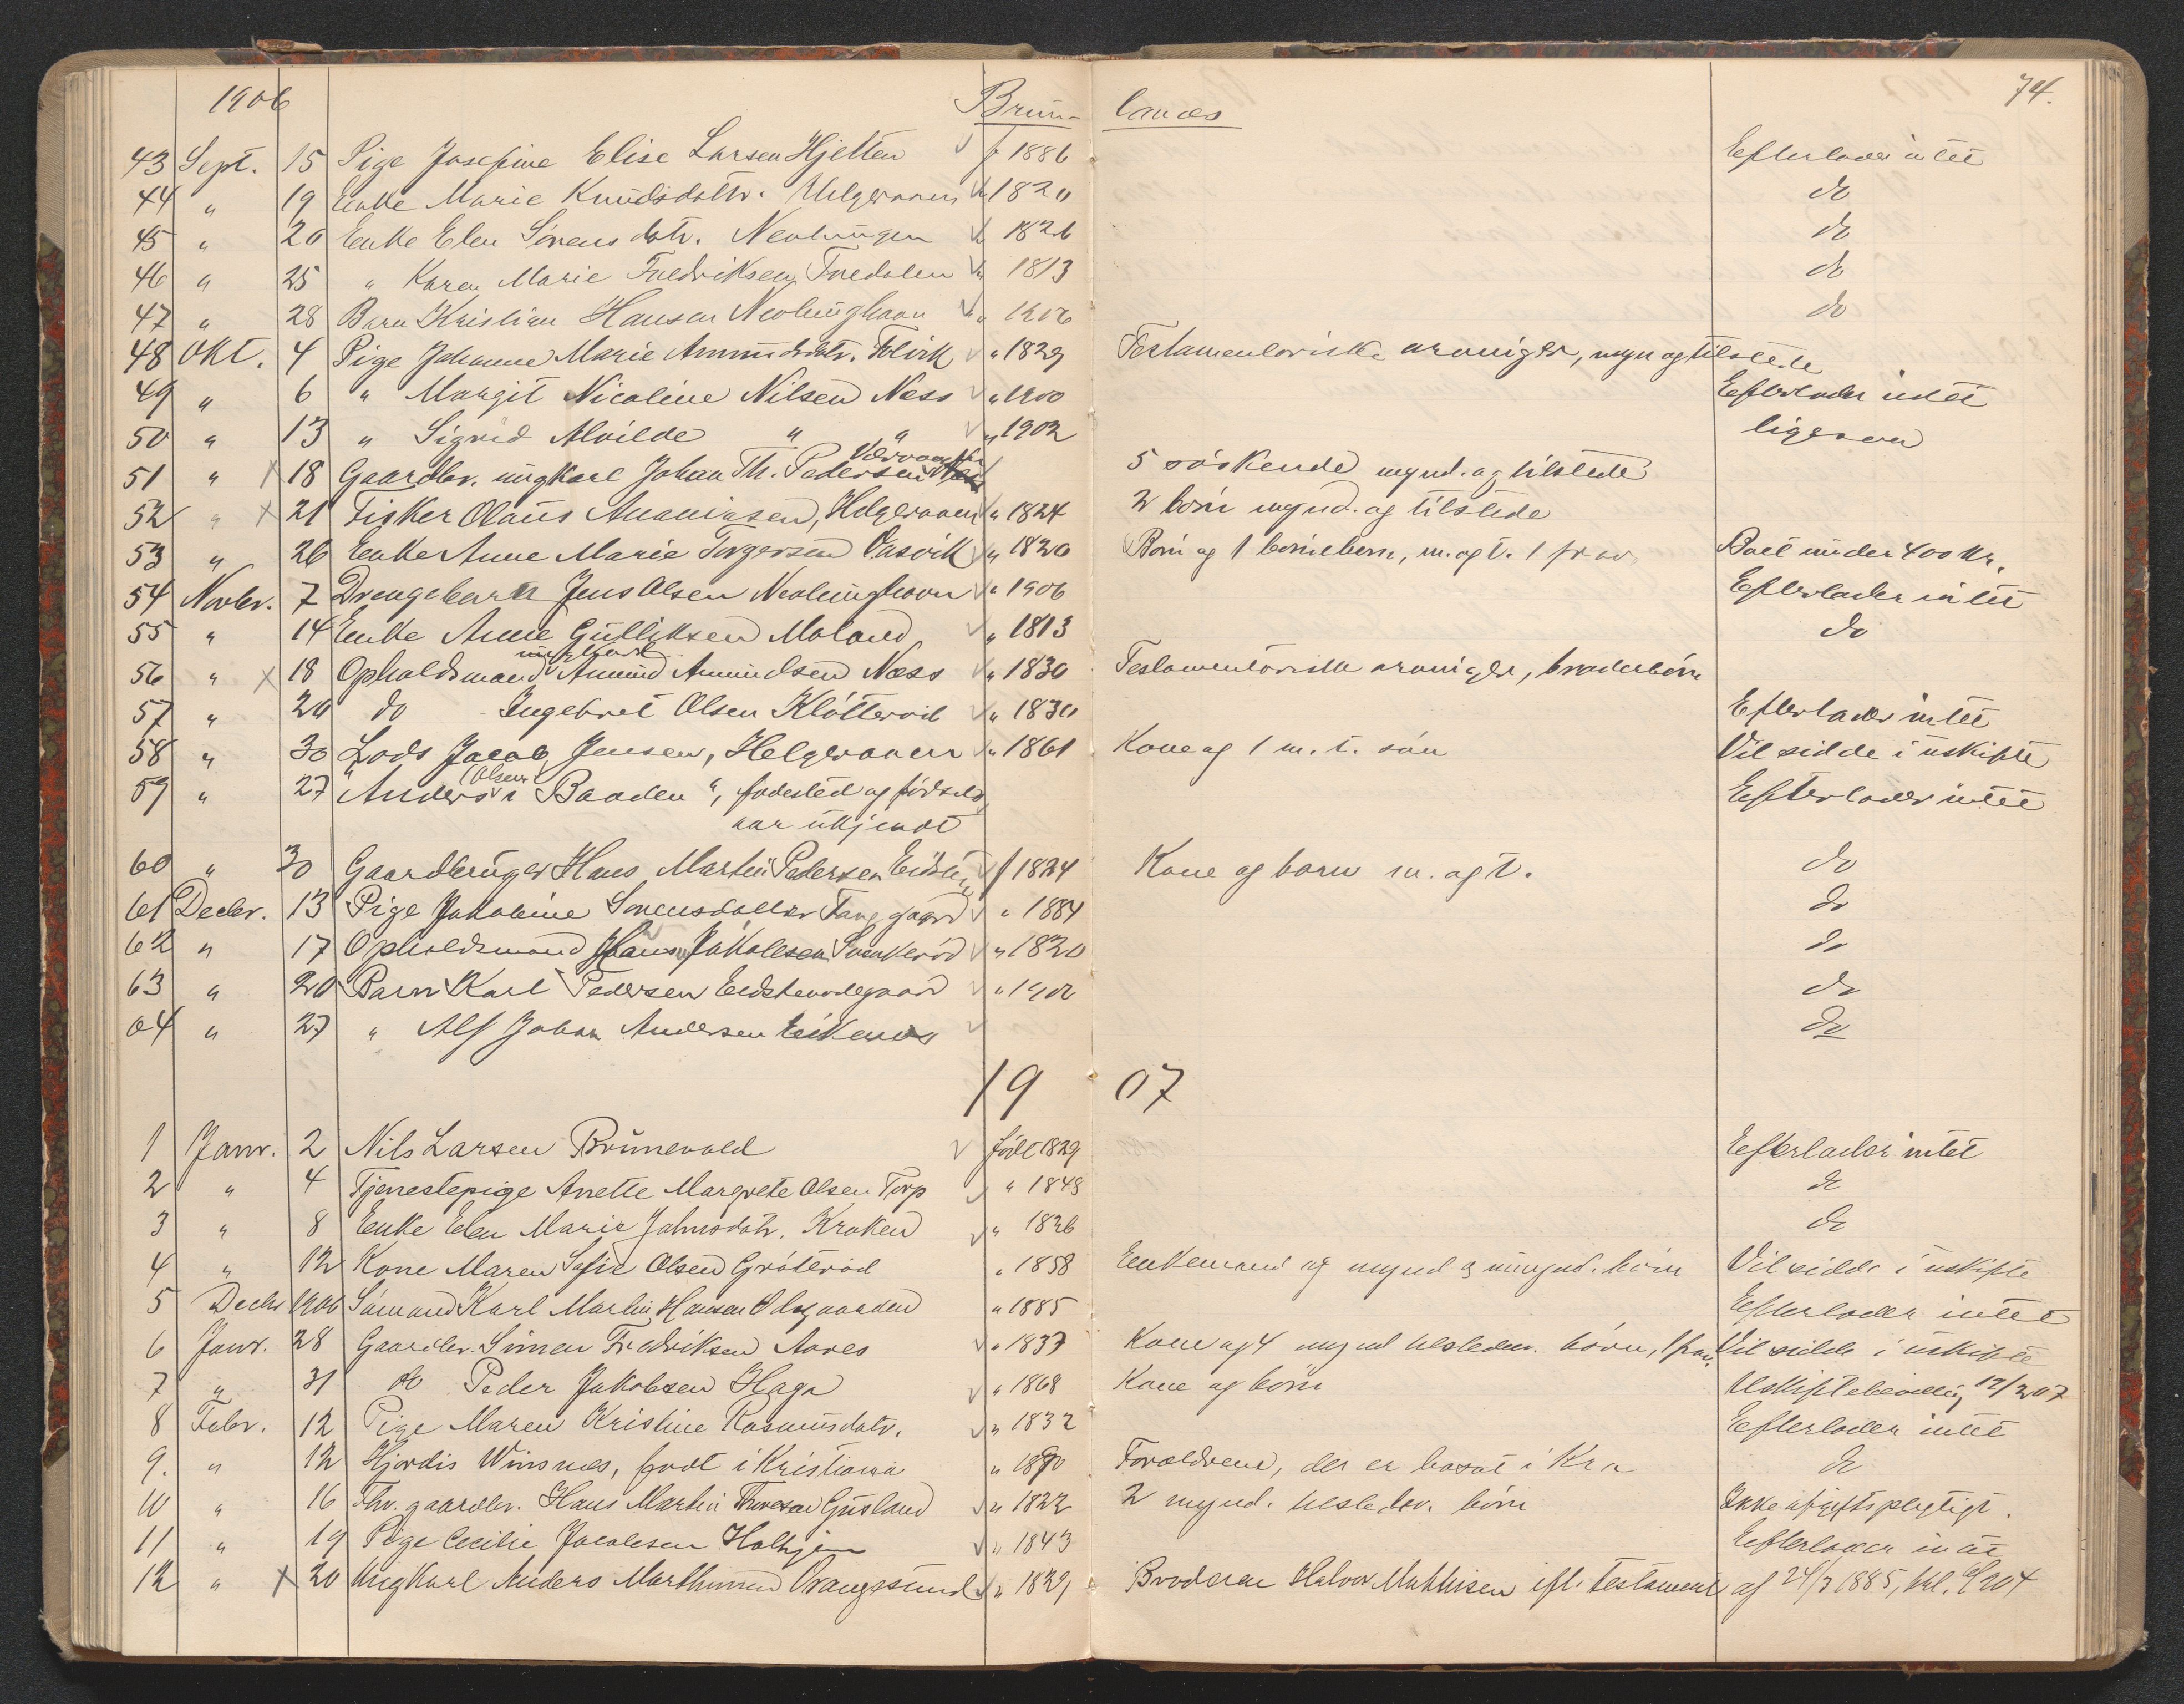 1906 Brun- lanæs 74.
43 Sept. 15 Pige Josefine Elise Larsen Hjelten f 1886 Efterlader intet
44 " 19 Enke Marie Knudsdatr. Helgeroaen 1820 do
45 " 20 Enke Elen Sørensdatr. Nevlungen 1826 do
46 " 25 " Karen Marie Fredriksen Fuedalen " 1813 do
47 " 28 Barn Kristian Hansen Nevlunghavn " 1906 do
48 Okt. 4 Pige Johanne Marie Amundsdatr. " 1829 Testamentoriske arvinger, myn og tilstede
49 " 6 " Margit Nicoline Nilsen Næss " 1900 Efterlader intet
50 " 13 " Sigrid Alvilde " " " 1902 ligesaa
51 " X 18 Gaardbr. ungkarl Johan Th. Pedersen 5 søskende mynd. og tilstede
52 " X 21 Fisker Olaus Ananiasen, Helgeroaen " 1824 2 børn mynd. og tilstede
53 " 26 Enke Anne Marie Torgersen Oasvik " 1820 Børn og 1 barnebarn, m. og t. 1 frav. Boet under 400 kr.
54 Novbr. 7 Drengebarn Jens Olsen Nevlunghavn " 1906 Efterlader intet
55 " 14 Enke Anne Gulliksen Moland " 1813 do
56 " X 18 Opholdsmand ungkarl Amund Amundsen Næss " 1830 Testamentoriske arvinger, broderbørn
57 " 20 do Ingebret Olsen Kløtterød " 1830 Efterlader intet
58 " 30 Lods Jacob Jensen, Helgeroaen " 1861 Kone og 1 m. t. søn Vil sidde i uskifte
59 " 27 "Anders (Olsen) i Baaden", fødested og fødsels Efterlader intet
aar ukjendt
60 " 30 Gaardbruger Hans Martin Pedersen f 1824 Kone og barn m. og t. do
61 Decbr. 13 Pige Jakobine Sørensdatter " 1884 do
62 " 17 Opholdsmand Hans Jakobsen " 1820 do
63 " 20 Barn Karl Pedersen " 1906 do
64 " 27 " Alf Johan Andersen Eikenes do
1907
1 Janr. 2 Nils Larsen Brunevald født 1829 Efterlader intet
2 " 4 Tjenestepige Anette Margrete Olsen Torp " 1848 do
3 " 8 Enke Elen Marie Johnsdatr. Kroken " 1826 do
4 " 12 Kone Maren Sofie Olsen Grøterød " 1858 Enkemand og mynd og umynd. børn Vil sidde i uskifte
5 Decbr 1906 Sømand Karl Martin Hansen " 1885 Efterlader intet
6 Janr. 28 Gaardbr. Simen Fredriksen Aaros " 1837 Kone og 4 mynd tilstedev. børn, 1 frav. Vil sidde i uskifte
7 " 31 do Peder Jakobsen Haga " 1868 Kone og børn Uskiftebevilling 12/2 07
8 Febr. 12 Pige Maren Kristine Rasmusdatr. " 1832 Efterlader intet
9. " 12 Hjørdis Winsnæs, født i Kristiania " 1890 Forældrene, der er bosat i Kra do
10 " 16 Fhv. gaardbr. Hans Martin Thoresen Gusland " 1822 2 mynd. tilstedev. børn Ikke afgiftspligtigt.
11 " 19 Pige Cecilie Jacobsen Holhjem " 1843 Efterlader intet
12 " X 20 Ungkarl Anders Marthinsen Vrangsund " 1829 Broderen Halvor Mathisen ifl. testament af 24/3 1885,